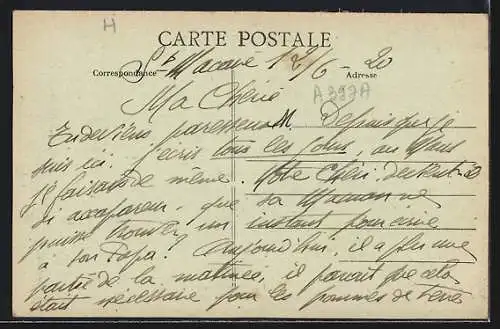 H
CARTE POSTALE
St Macaire 12/6-20
Correspondance Adresse
A397A
Ma Chérie
paresseuse. Depuis que je
suis ici, j'écris tous les jours, au
je faisais de même. Notre Chéri, devient-il
si accapareur, que sa Maman ne
puisse trouver un instant pour écrire
à son Papa? Aujourd'hui, il a plu une
partie de la matinée, il paraît que cela
était nécessaire pour les pommes de terre